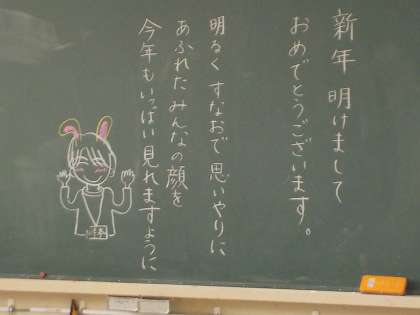 新年 明けまして
おめでとうございます。
明るく すなおで 思いやりに
あふれた みんなの 顔を
今年も いっぱい 見れますように